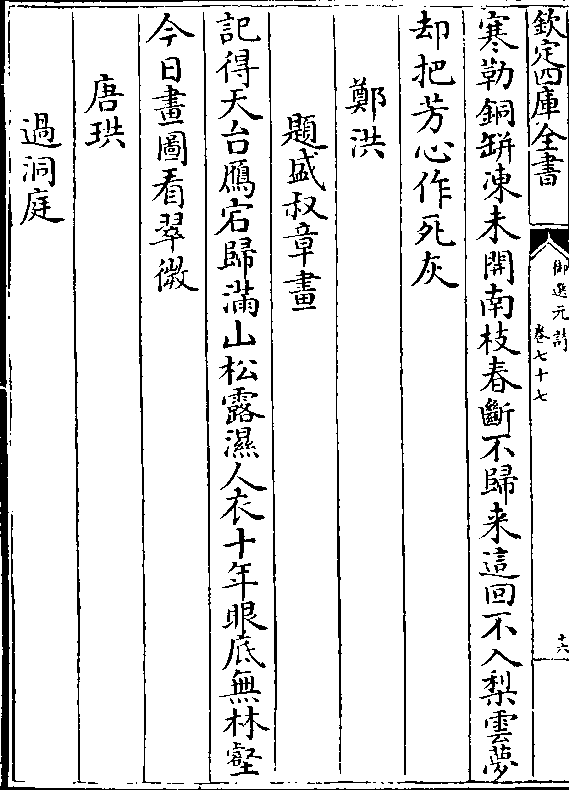 欽定四庫全書
御選元詩
卷七十七
十六
寒勒銅缾凍未開南枝春斷不歸来這回不入梨雲夢
却把芳心作死灰
鄭洪
題盛叔章畫
記得天台鴈宕歸滿山松露濕人衣十年眼底無林壑
今日畫圖看翠微
唐珙
過洞庭